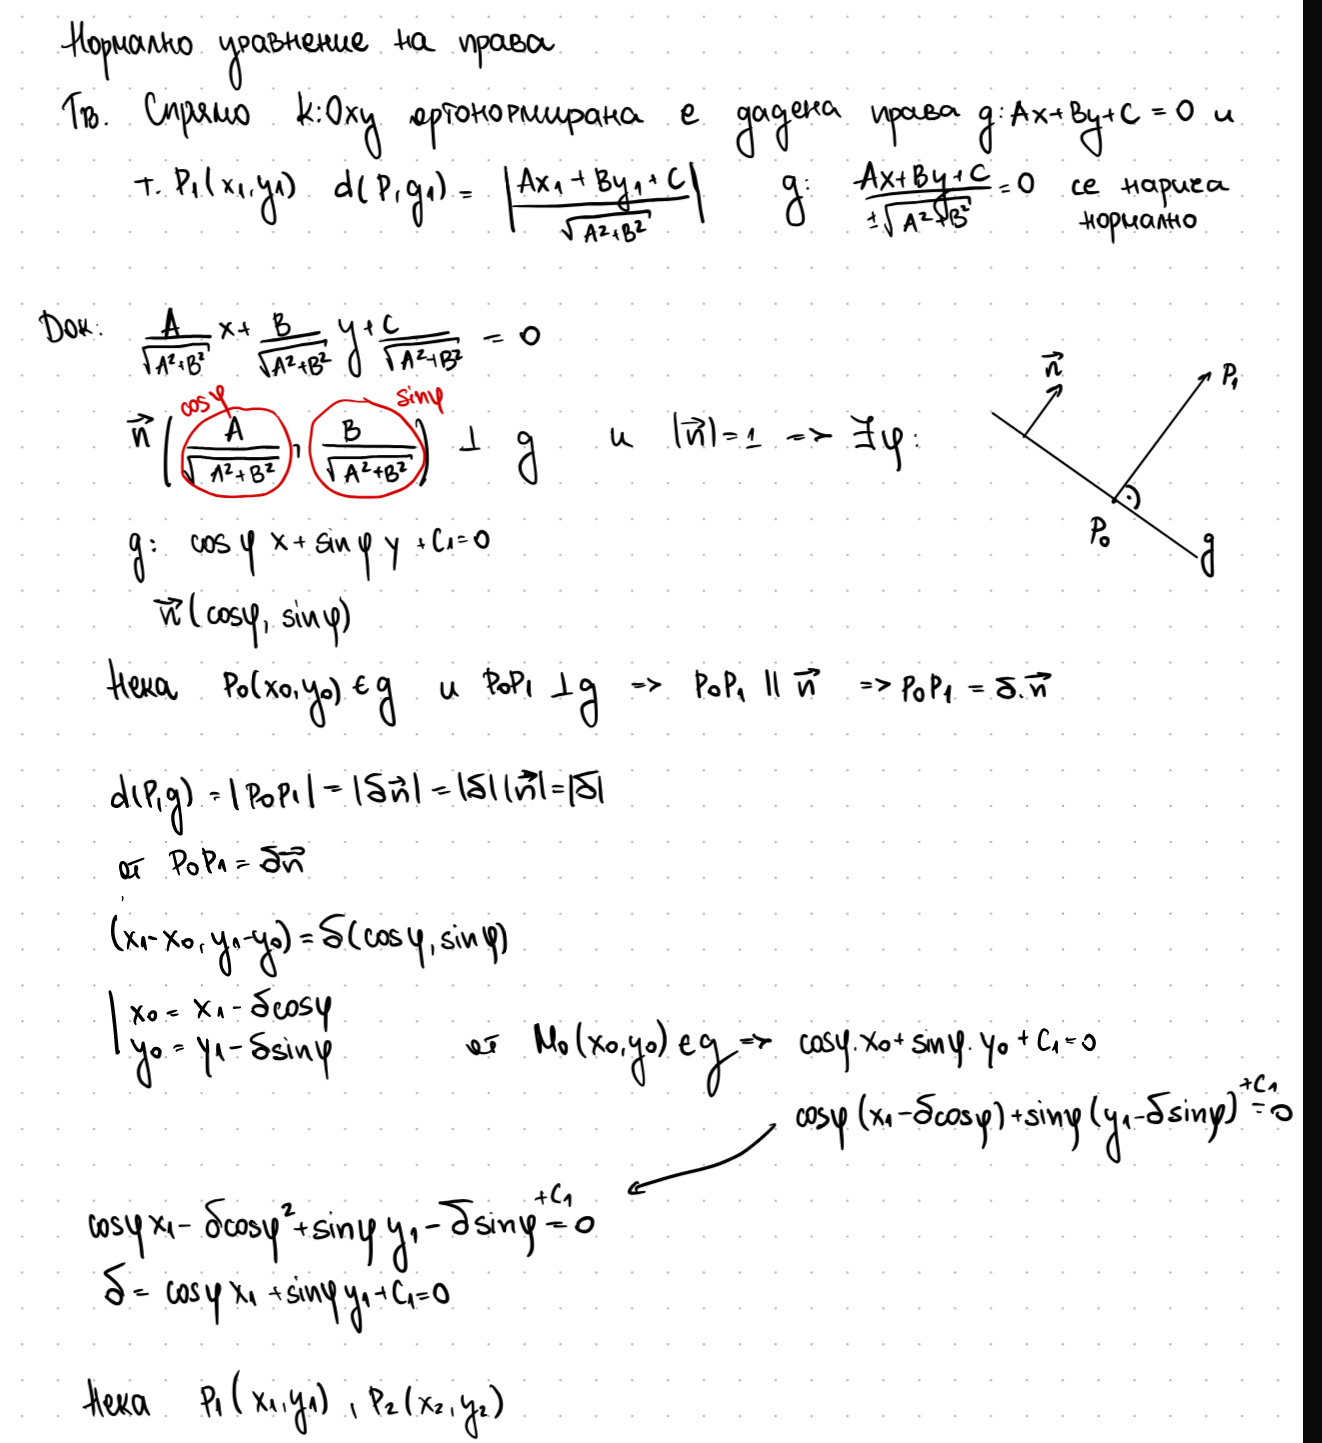 Нормално уравнение на права
Тв. Спрямо K:Oxy ортонормирана е дадена права g: Ax+By+C = 0 и
т. P₁(x₁,y₁) d(P,g₁) = |Ax₁ + By₁ + C / √(A²+B²)| g: Ax+By+C / ±√(A²+B²) = 0 се нарича
нормално
Док: A/√(A²+B²) x + B/√(A²+B²) y + C/√(A²+B²) = 0
cosφ sinφ
n⃗ (A/√(A²+B²), B/√(A²+B²)) ⊥ g и |n⃗| = 1 => ∃φ:
n⃗ P₁
P₀ g
g: cosφ x + sinφ y + C₁ = 0
n⃗(cosφ, sinφ)
Нека P₀(x₀,y₀) ∈ g и P₀P₁ ⊥ g => P₀P₁ || n⃗ => P₀P₁ = δ.n⃗
d(P,g) = |P₀P₁| = |δn⃗| = |δ||n⃗| = |δ|
от P₀P₁ = δn⃗
(x₁-x₀, y₁-y₀) = δ(cosφ, sinφ)
| x₀ = x₁ - δcosφ
| y₀ = y₁ - δsinφ от M₀(x₀,y₀) ∈ g => cosφ.x₀ + sinφ.y₀ + C₁ = 0
cosφ(x₁-δcosφ) + sinφ(y₁-δsinφ) +C₁ = 0
cosφ x₁ - δcosφ² + sinφ y₁ - δsinφ +C₁ = 0
δ = cosφ x₁ + sinφ y₁ + C₁ = 0
Нека P₁(x₁,y₁), P₂(x₂,y₂)